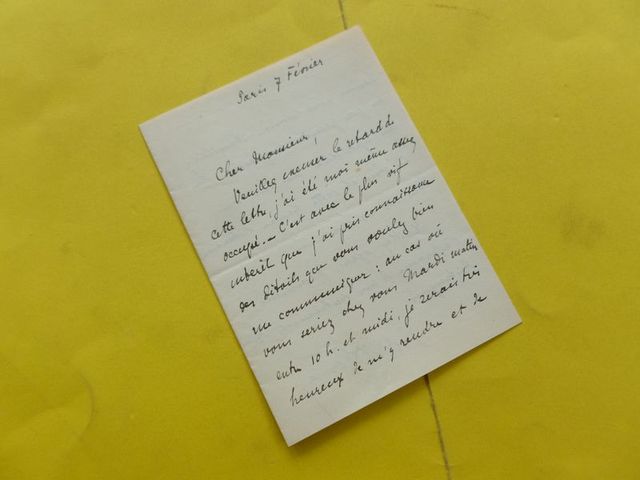 Paris 7 Février
Cher Monsieur,
Veuillez excuser le retard de
cette lettre, j'ai été moi même assez
occupé. — C'est avec le plus vif
intérêt que j'ai pris connaissance
des détails que vous voulez bien
me communiquer : au cas où
vous seriez chez vous Mardi matin
entre 10 h. et midi, je serais très
heureux de m'y rendre et de